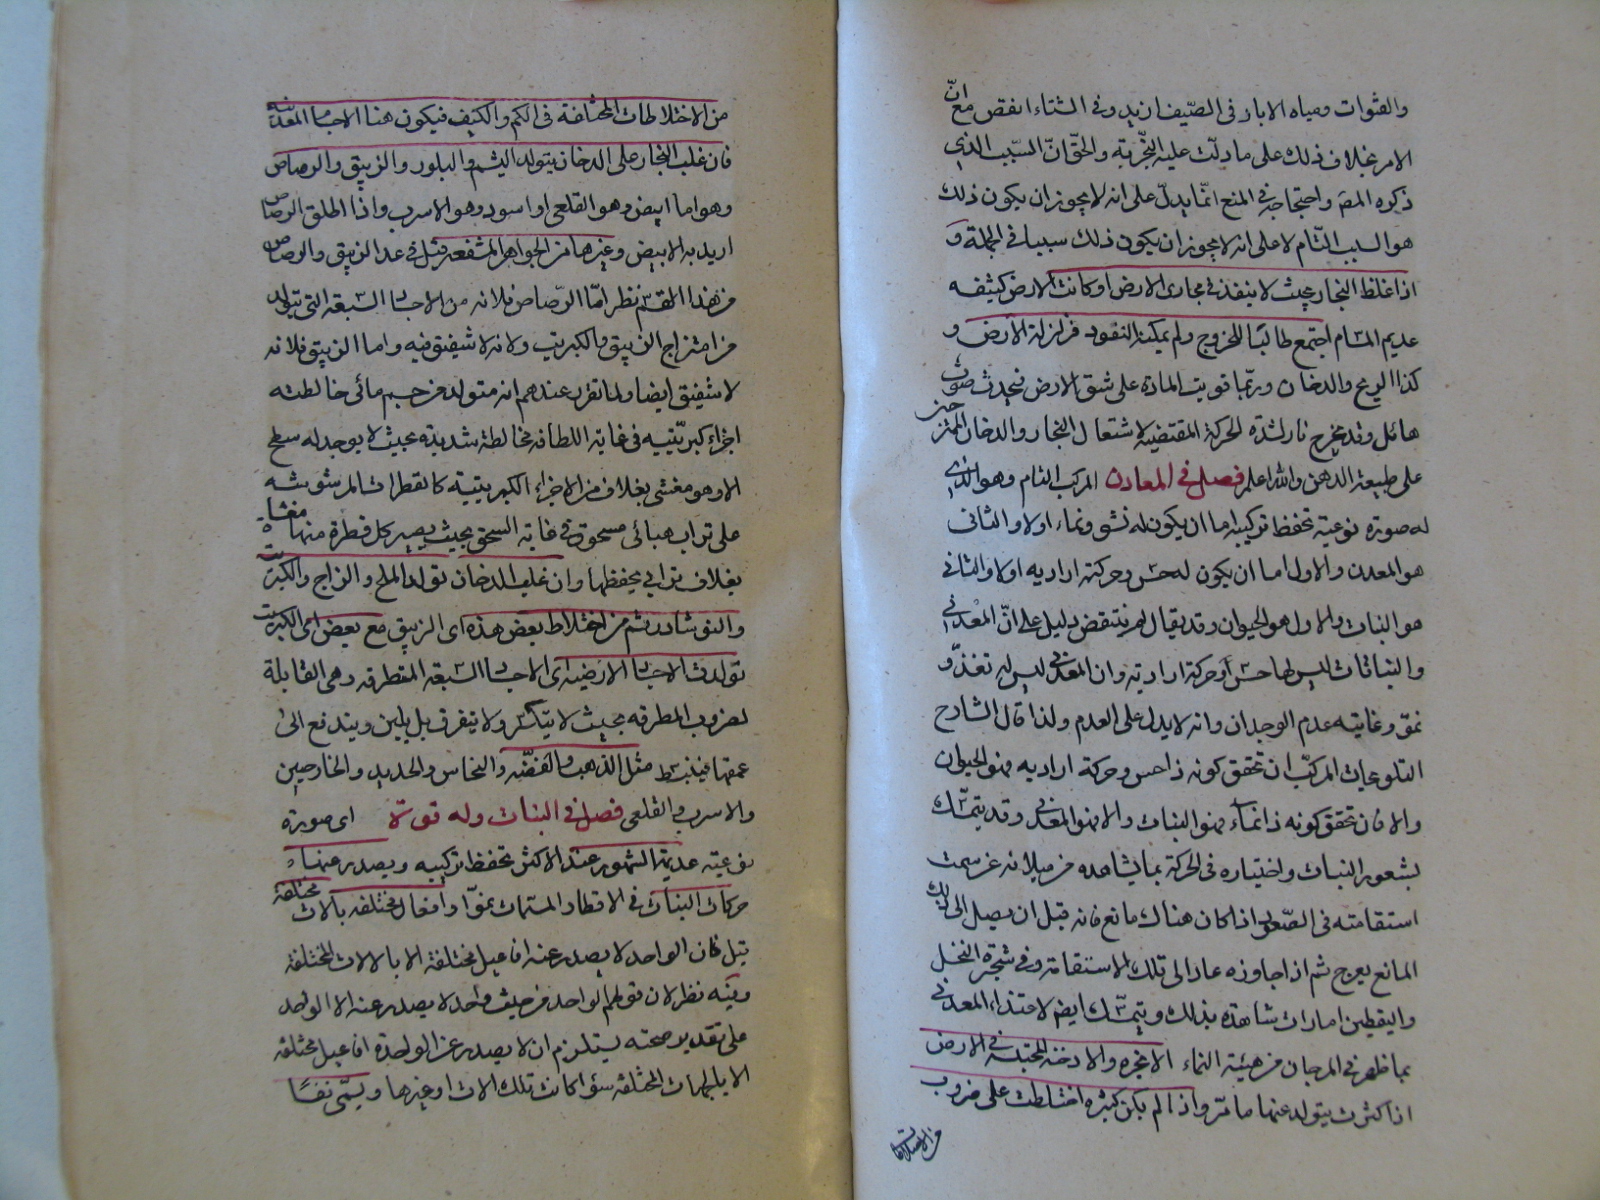 والقنوات ومياه الابار فى الصيف ازيد وفى الشتاء انقص مع انّ
الامر بخلاف ذلك على ما دلّت عليه التجربة والحق انّ السبب الذي
ذكره المصَ واحتجاجه فى المنع انمّا يدلّ على انه لا يجوز ان يكون ذلك
هو السبب التّام لا على انه لا يجوز ان يكون ذلك سببا فى الجملة وَ
اذا غلظ البخار بحيث لا ينفذ فى مجارى الارض او كانت الارض كثيفه
عديم المسام اجتمع طالبًا للخروج ولم يمكنه النفوذ فزلزلة الارض و
كذا الريح والدخان وربّما قويت المادة على شق الارض فيحدث صوت
هائل وقد يخرج نار لشدة الحركة المقتضية لاشتعال البخار والدخان الممتزجين
على طبيعة الدهن والله اعلم فصل فى المعادن المركب التام وهو الذي
له صورة نوعية تحفظ تركيبه اما ان يكون له نشو ونماء اولا والثانى
هو المعدن والاول اما ان يكون له حسّ وحركة ارادية اولا والثانى
هو النبات والاول هو الحيوان وقد يقال لم ينتقض دليل على انّ المعدنى
والنباتات ليس لها حسّ او حركة ارادية وان المعدنى ليس له تغذّ و
نموّ وغايته عدم الوجدان وانه لا يدل على العدم ولذا قال الشارح
التلويحات المركّب ان تحقق كونه ذا حس وحركة ارادية فهو الحيوان
والا فان تحقق كونه ذا نماء فهو النبات والا فهو المعدنى وقد يتمسّك
لشعور النبات واختياره فى الحركة بما يشاهده من ميلانه عن سمت
استقامته فى الصّعود اذا كان هناك مانع فانه قبل ان يصل الى ذلك
المانع يعوج ثم اذا جاوزه عاد الى تلك الاستقامة وفى شجرة النخل
واليقطين امارات شاهدة بذلك ويتمسّك ايضا لاغتذاء المعدنى
بما ظهر فى المرجان من هيئة النماء الابخره والادخنة المحتبسة فى الارض
اذا كثرت يتولد عنها ما مرّ واذا لم يكن كثيرة اختلطت على ضروب
من الاختلاطات
من الاختلاطات المختلفة فى الكم والكيف فيكون منها الاجسام المعدنية
فان غلب البخار على الدخان يتولد اليشم والبلور والزيبق والرصاص
وهو اما ابيض وهو القلعى او اسود وهو الاسرب واذا اطلق الرصاص
اريد به الابيض وغيرها من الجواهر المشفة قيل فى عد الزيبق والرصاص
من هذا القسم نظر امّا الرّصاص فلانه من الاجساد السّبعة التى يتولد
من امتزاج الزيبق والكبريت ولانه لا شفيف فيه واما الزيبق فلانه
لا شفيف ايضا ولما تقرر عندهم انه متولد من جسم مائى خالطته
اجزاء كبريّتيه فى غاية اللطافة مخالطة شديدة بحيث لا يوجد له سطح
الا وهو مغشى بغلاف من الاجزاء الكبريتية كالقطرات المرشوشة
على تراب هبائى مسحوق فى غاية السحق بحيث يصير كل قطرة منها مغشاة
بغلاف ترابى يحفظها وان غلب الدخان تولد الملح والزاج والكبريت
والنوشادر ثم من اختلاط بعض هذه اى الزيبق مع بعض اى الكبريت
تولدت الاجساد الارضية اى الاجساد السّبعة المتطرقة وهى القابلة
لضروب المطرقة بحيث لا يتكسّر ولا يتفرق بل يلين ويندفع الى
عمقها فينبسط مثل الذهب والفضّة والنحاس والحديد والخارصين
والاسرب والقلعى فصل فى النبات وله قوّة اى صورة
نوعية عديمة الشعور عند الاكثر تحفظ تركيبه ويصدر عنها
حركات النبات فى الاقطار المسمّات نموّا وافعال مختلفة بالات مختلفة
قيل فان الواحد لا يصدر عنه افاعيل مختلفة الا بالالات المختلفة
وفيه نظر لان قولهم الواحد من حيث واحد لا يصدر عنه الا الواحد
على تقدير صحته يستلزم ان لا يصدر عن الواحدة افاعيل مختلفة
الا بالجهات المختلفة سواء كانت تلك الالات او غيرها ويسمّى نفسًا